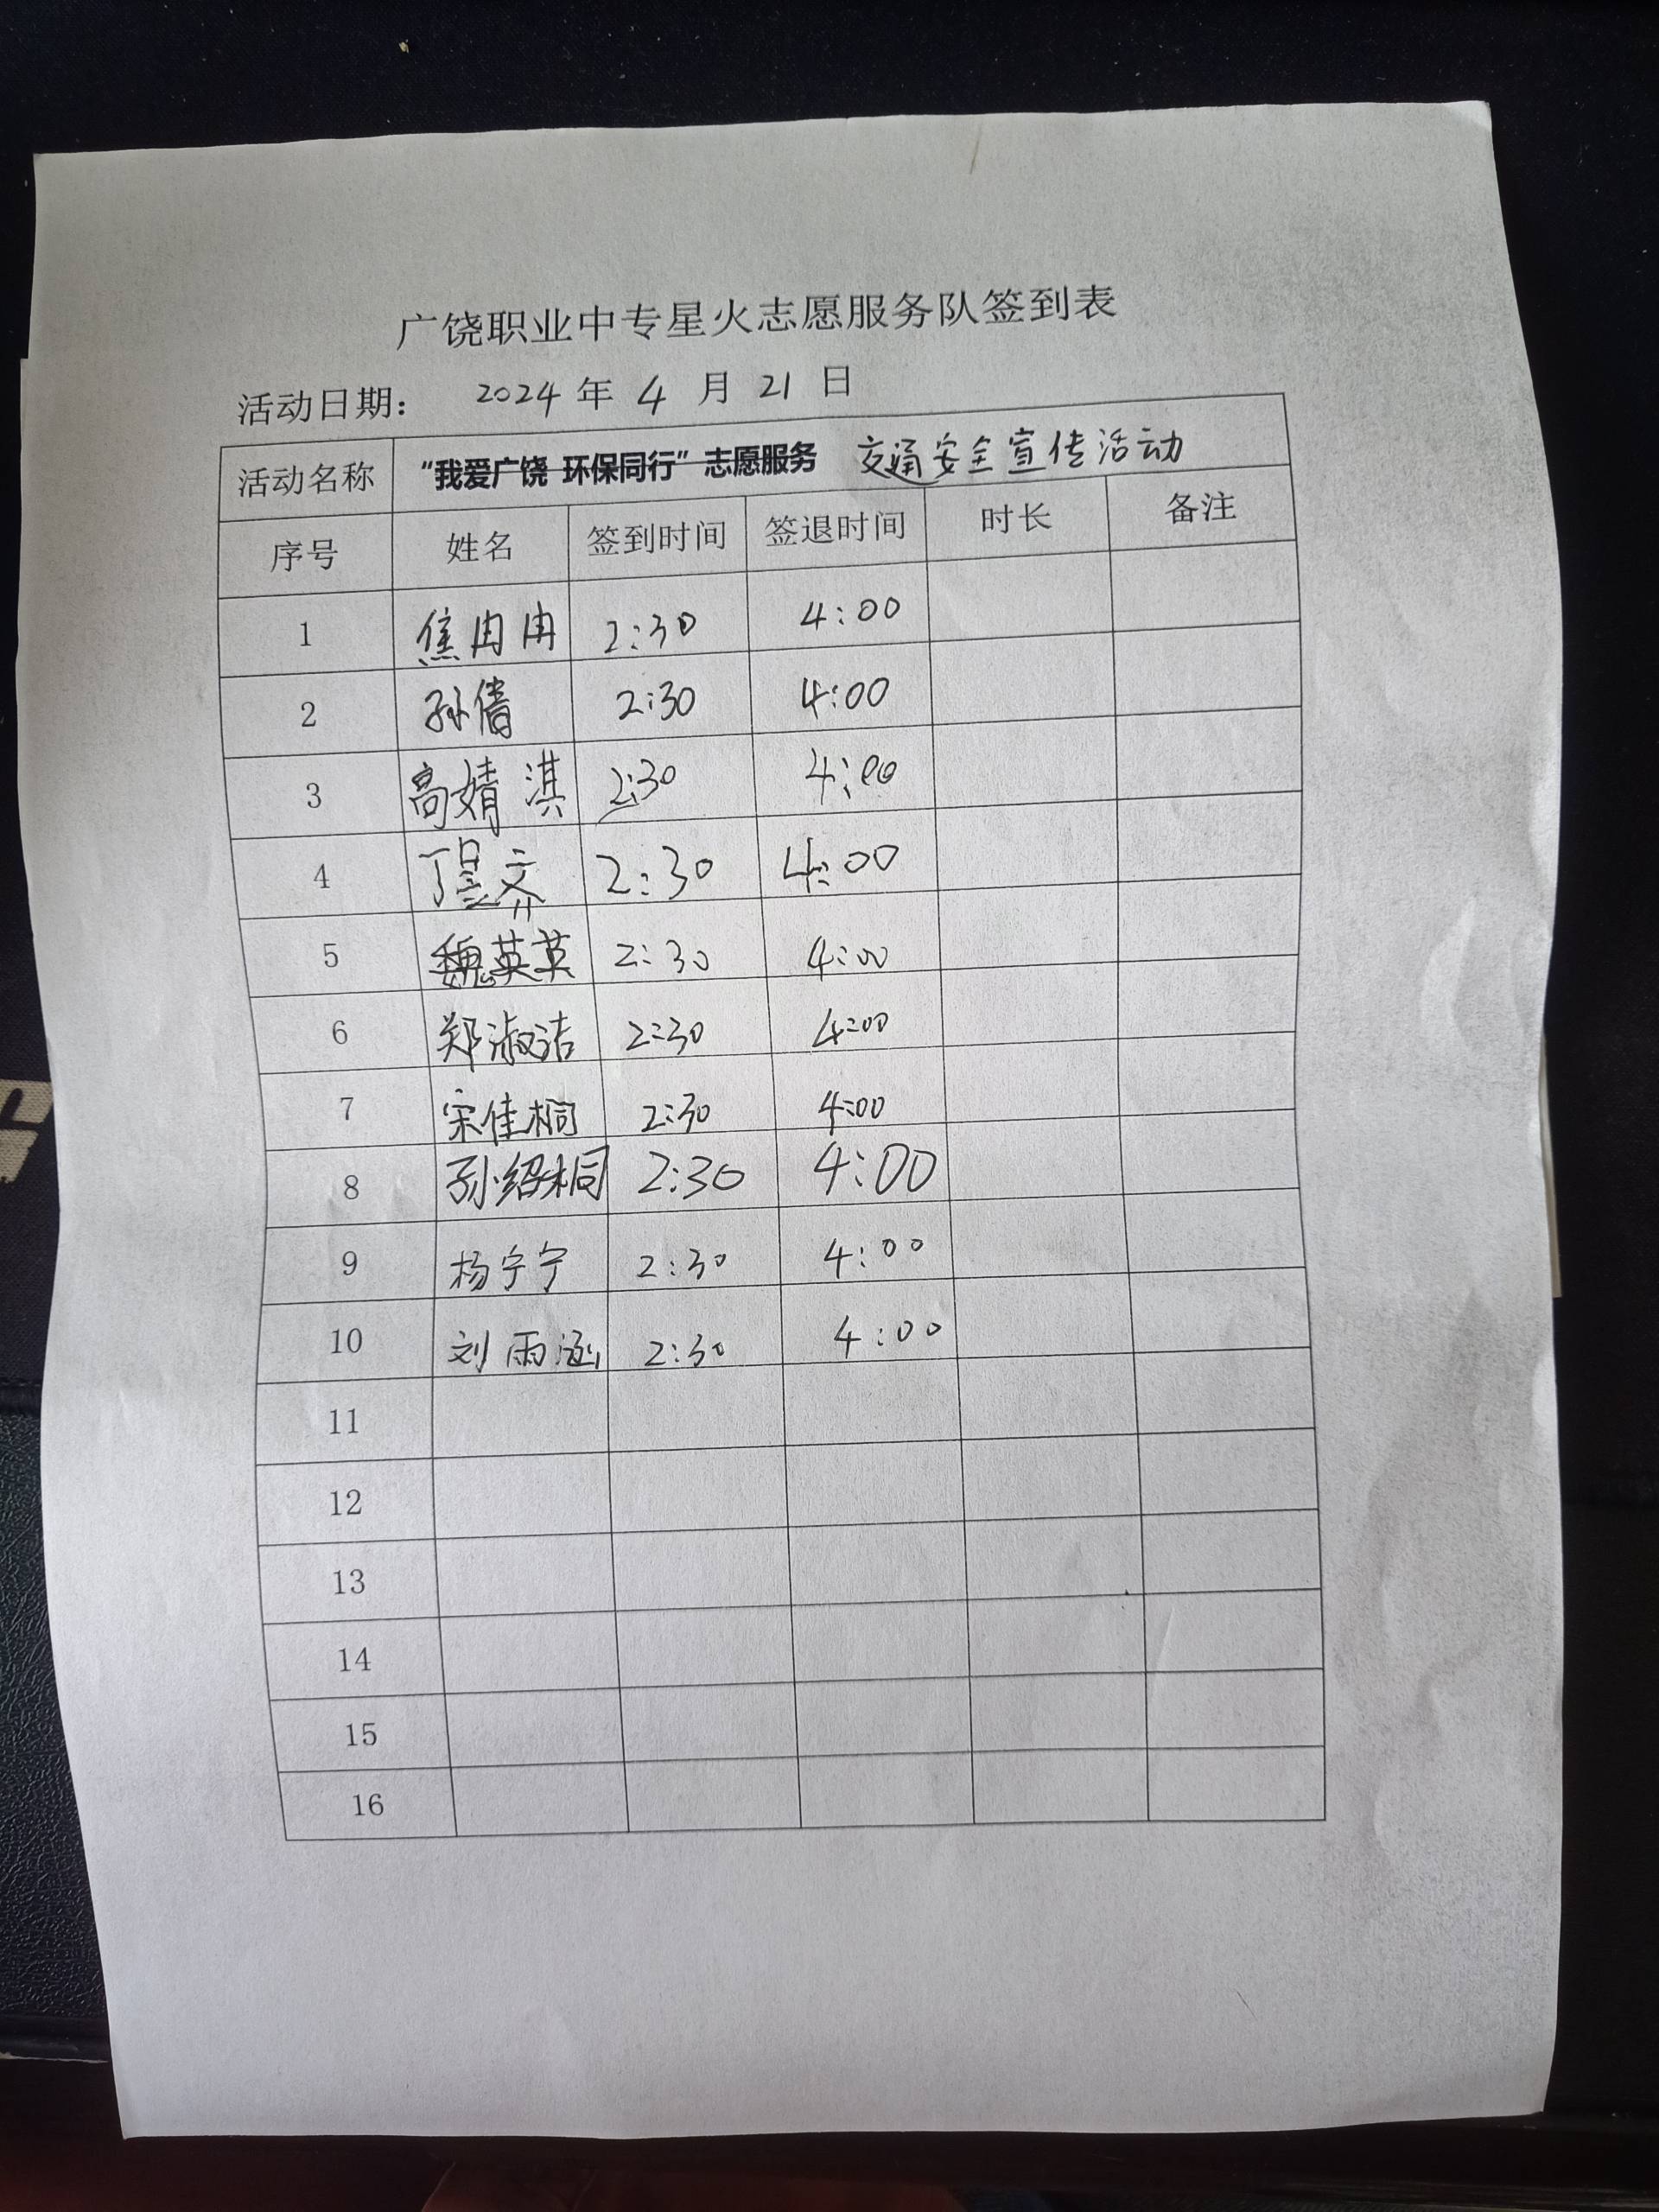 广饶职业中专星火志愿服务队签到表
活动日期： 2024 年 4 月 21 日
活动名称 “我爱广饶 环保同行”志愿服务 交通安全宣传活动
序号 姓名 签到时间 签退时间 时长 备注
1 焦冉冉 2:30 4:00
2 孙倩 2:30 4:00
3 高婧淇 2:30 4:00
4 2:30 4:00
5 魏英英 2:30 4:00
6 郑淑洁 2:30 4:00
7 宋佳桐 2:30 4:00
8 孙绍桐 2:30 4:00
9 杨宁宁 2:30 4:00
10 刘雨涵 2:30 4:00
11
12
13
14
15
16